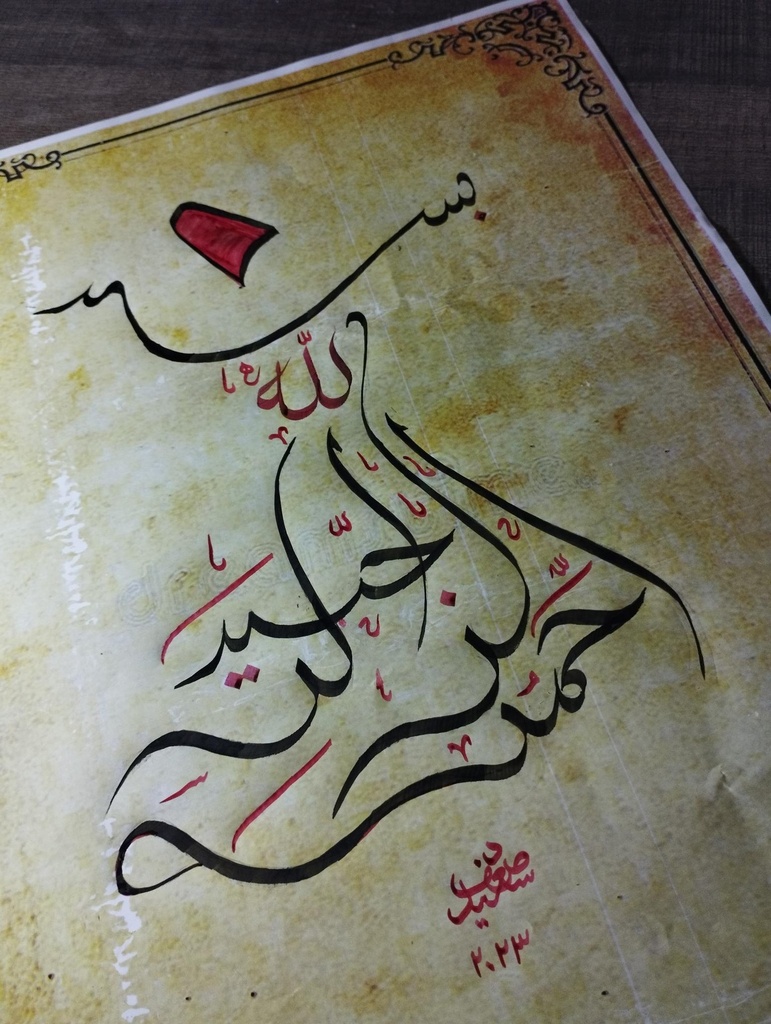 بسم
الله
الرحمن
الرحيم
سعيد
٢٠٢٣